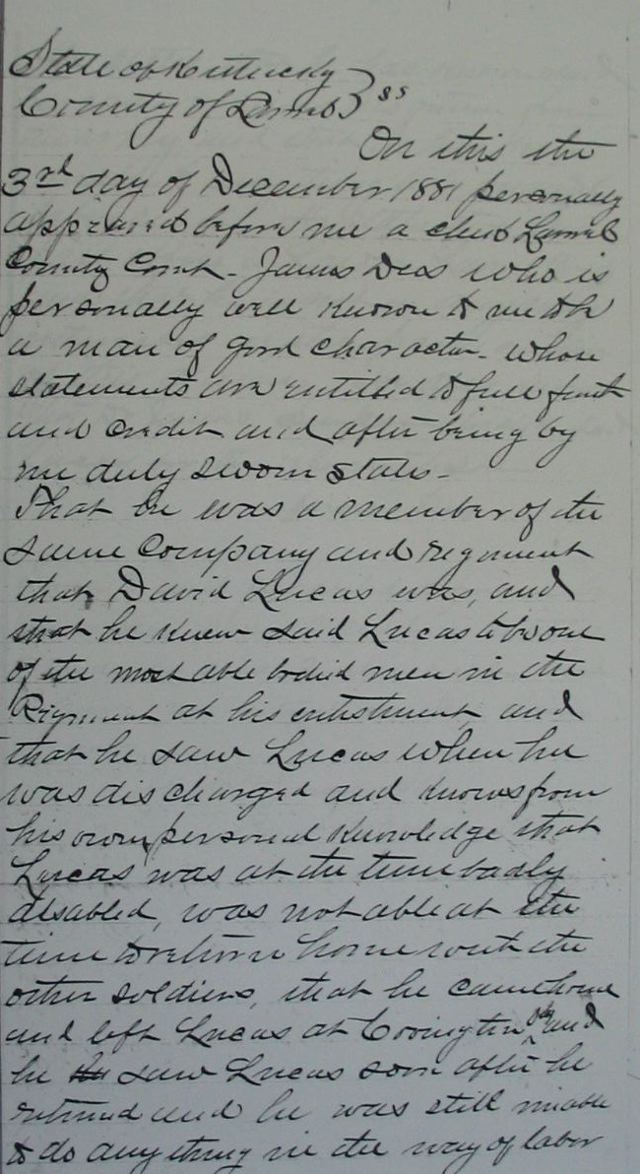 State of Kentucky
County of Laurel } ss
On this the
3rd day of December 1881 personally
appeared before me a clerk Laurel
County Court - James Dees who is
personally well known to me to be
a man of good character - whose
statements are entitled to full faith
and credit and after being by
me duly sworn states -
That he was a member of the
same Company and regiment
that David Lucas was, and
that he knew said Lucas to be one
of the most able bodied men in the
Regiment at his enlistment and
that he saw Lucas when he
was discharged and knows from
his own personal knowledge that
Lucas was at the time badly
disabled, was not able at the
time to return home with the
other soldiers, that he came home
and left Lucas at Covington Ky and
he saw Lucas soon after he
returned and he was still unable
to do anything in the way of labor